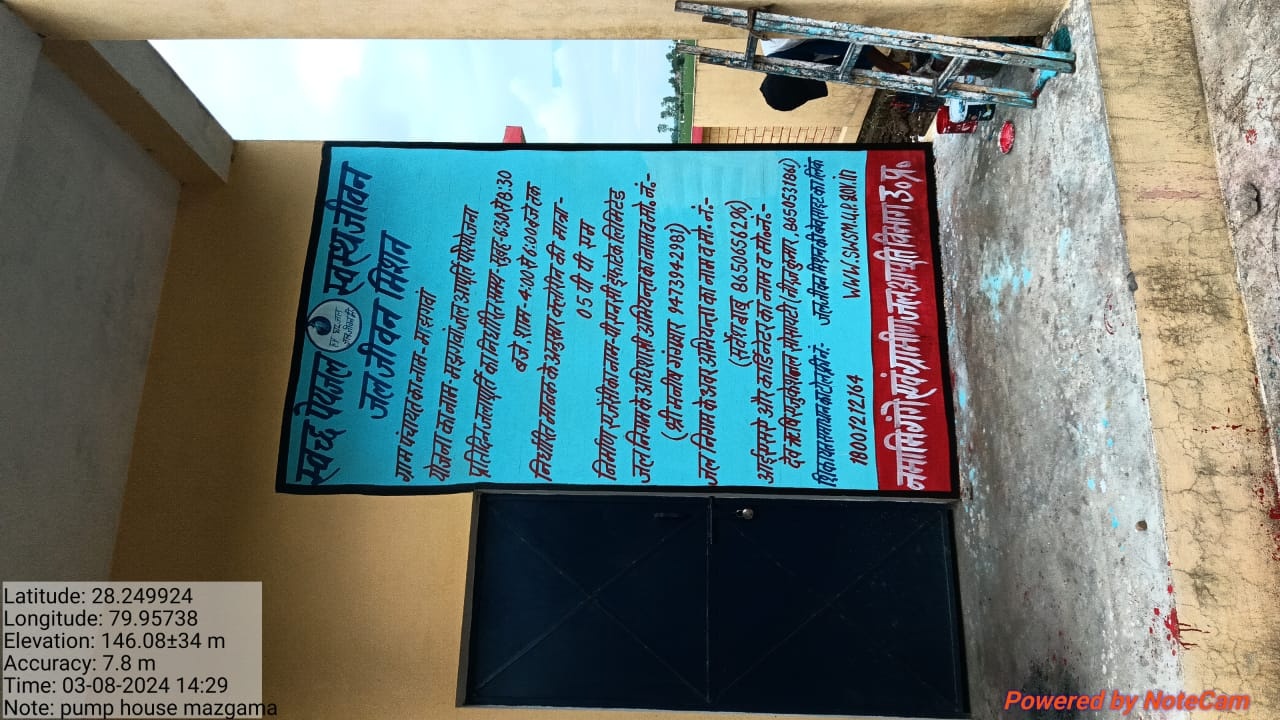 स्वच्छ पेयजल स्वस्थ जीवन
जल जीवन मिशन
ग्राम पंचायत का नाम- मझगवां
योजना का नाम- मझगवां जल आपूर्ति परियोजना
प्रतिदिन जलापूर्ति का निर्धारित समय- सुबह- 6:30 से 8:30
बजे, शाम- 4:00 से 6:00 बजे तक
निर्धारित मानक के अनुसार क्लोरीन की मात्रा-
05 पी पी एम
निर्माण एजेंसी का नाम- पी.एन.सी इंफ्राटेक लिमिटेड
जल निगम के अधिशासी अभियन्ता का नाम व मो. नं.-
(श्री मनीष गंगवार 9473942981)
जल निगम के अवर अभियन्ता का नाम व मो. नं.-
(सर्वेश बाबू 8650656296)
आई.एस.ए और कार्डिनेटर का नाम व मो. नं.-
नीरज कुमार, 865053186)
18001212164
जल जीवन मिशन की वेबसाइट का लिंक
नमामि गंगे एवं ग्रामीण जल आपूर्ति विभाग उ० प्र०
Latitude: 28.249924
Longitude: 79.95738
Elevation: 146.08±34 m
Accuracy: 7.8 m
Time: 03-08-2024 14:29
Note: pump house mazgama
Powered by NoteCam